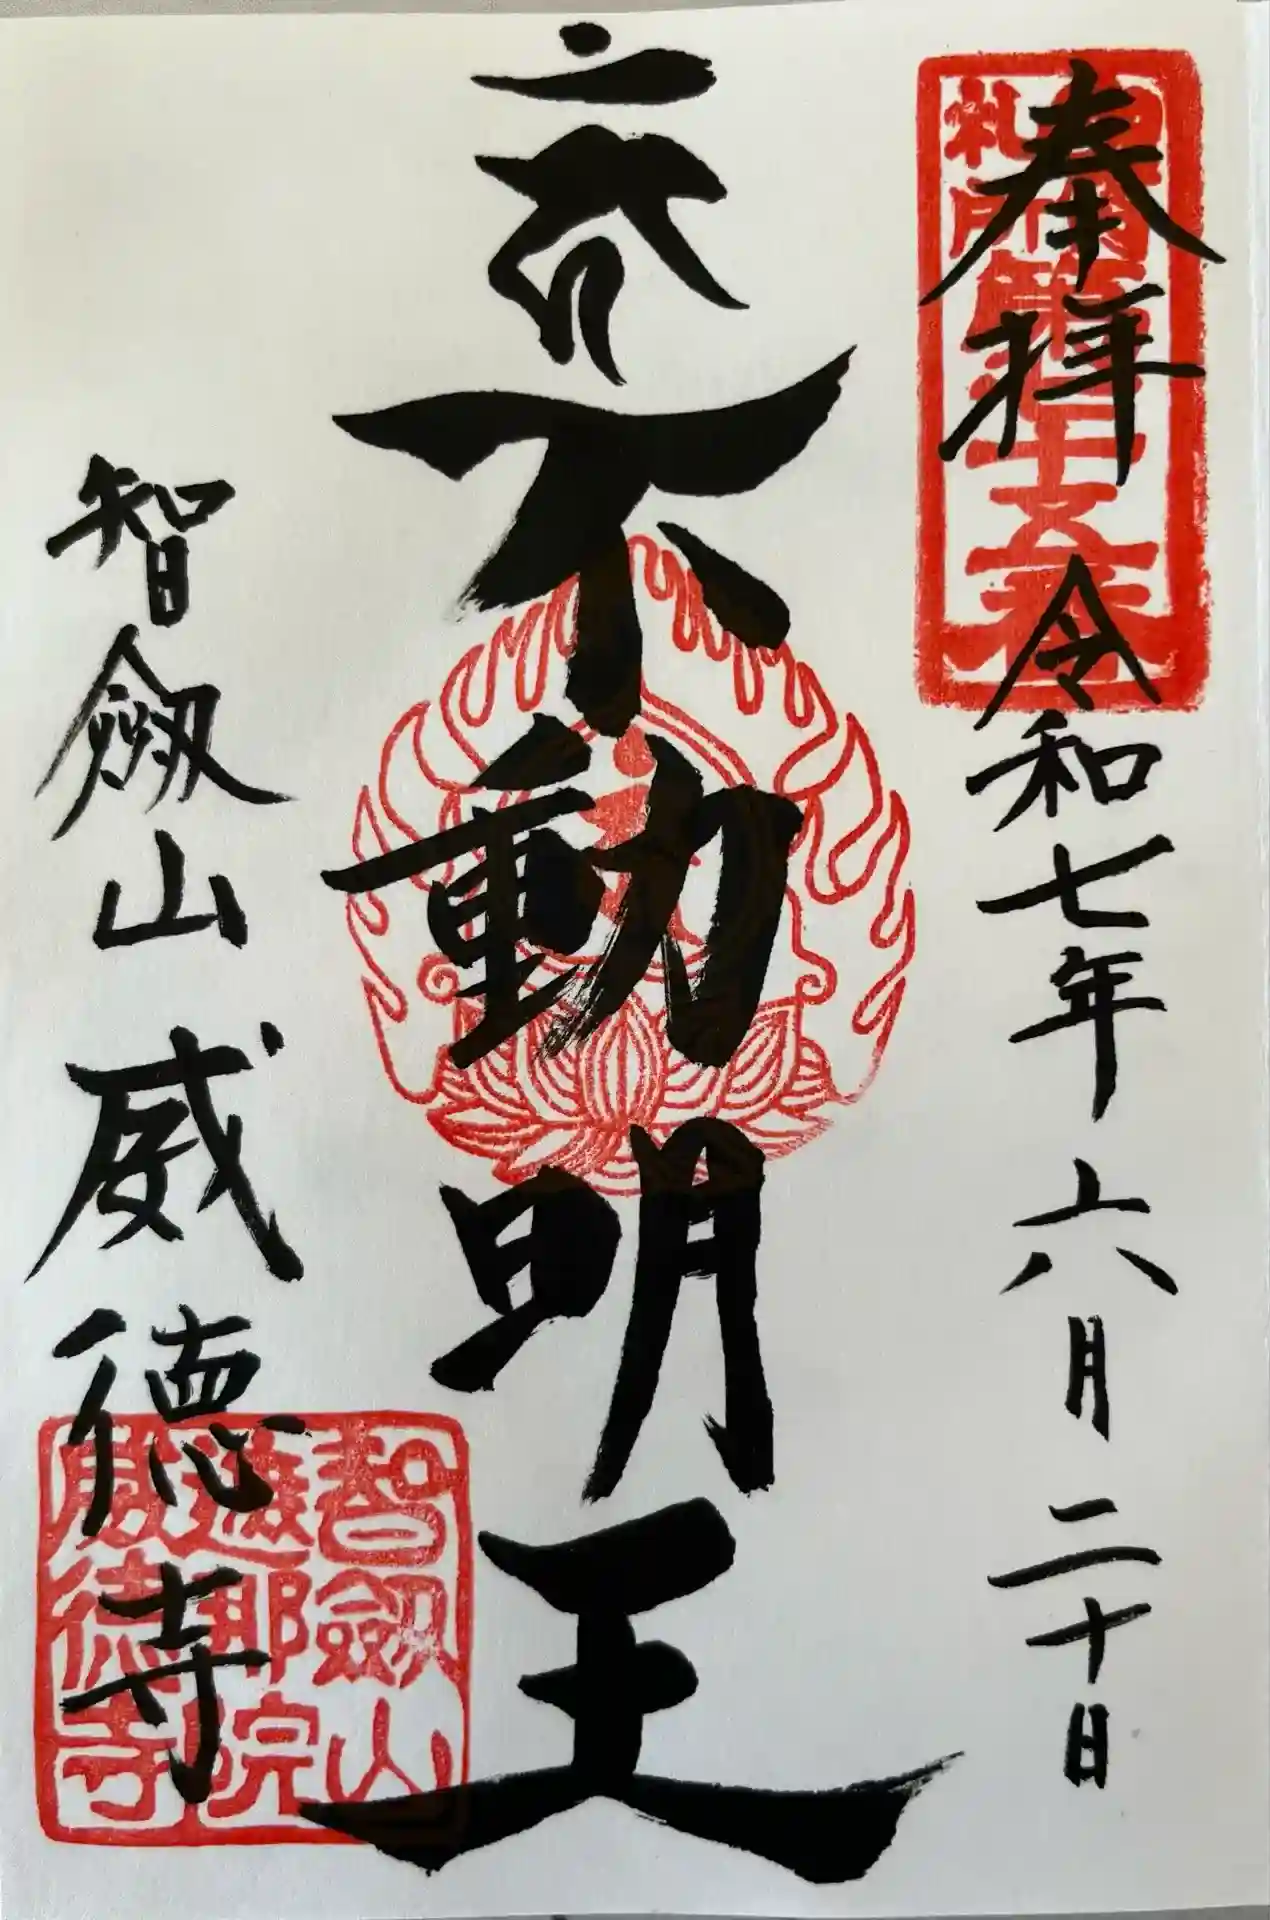 奉拝
令和七年 六月 二十日
不動明王
智劔山 威徳寺
札所
智劔山
遮那院
威徳寺